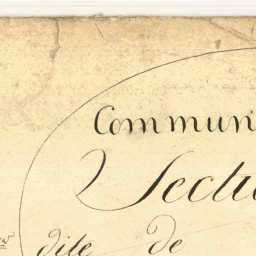 Commun
Sectio
dite de